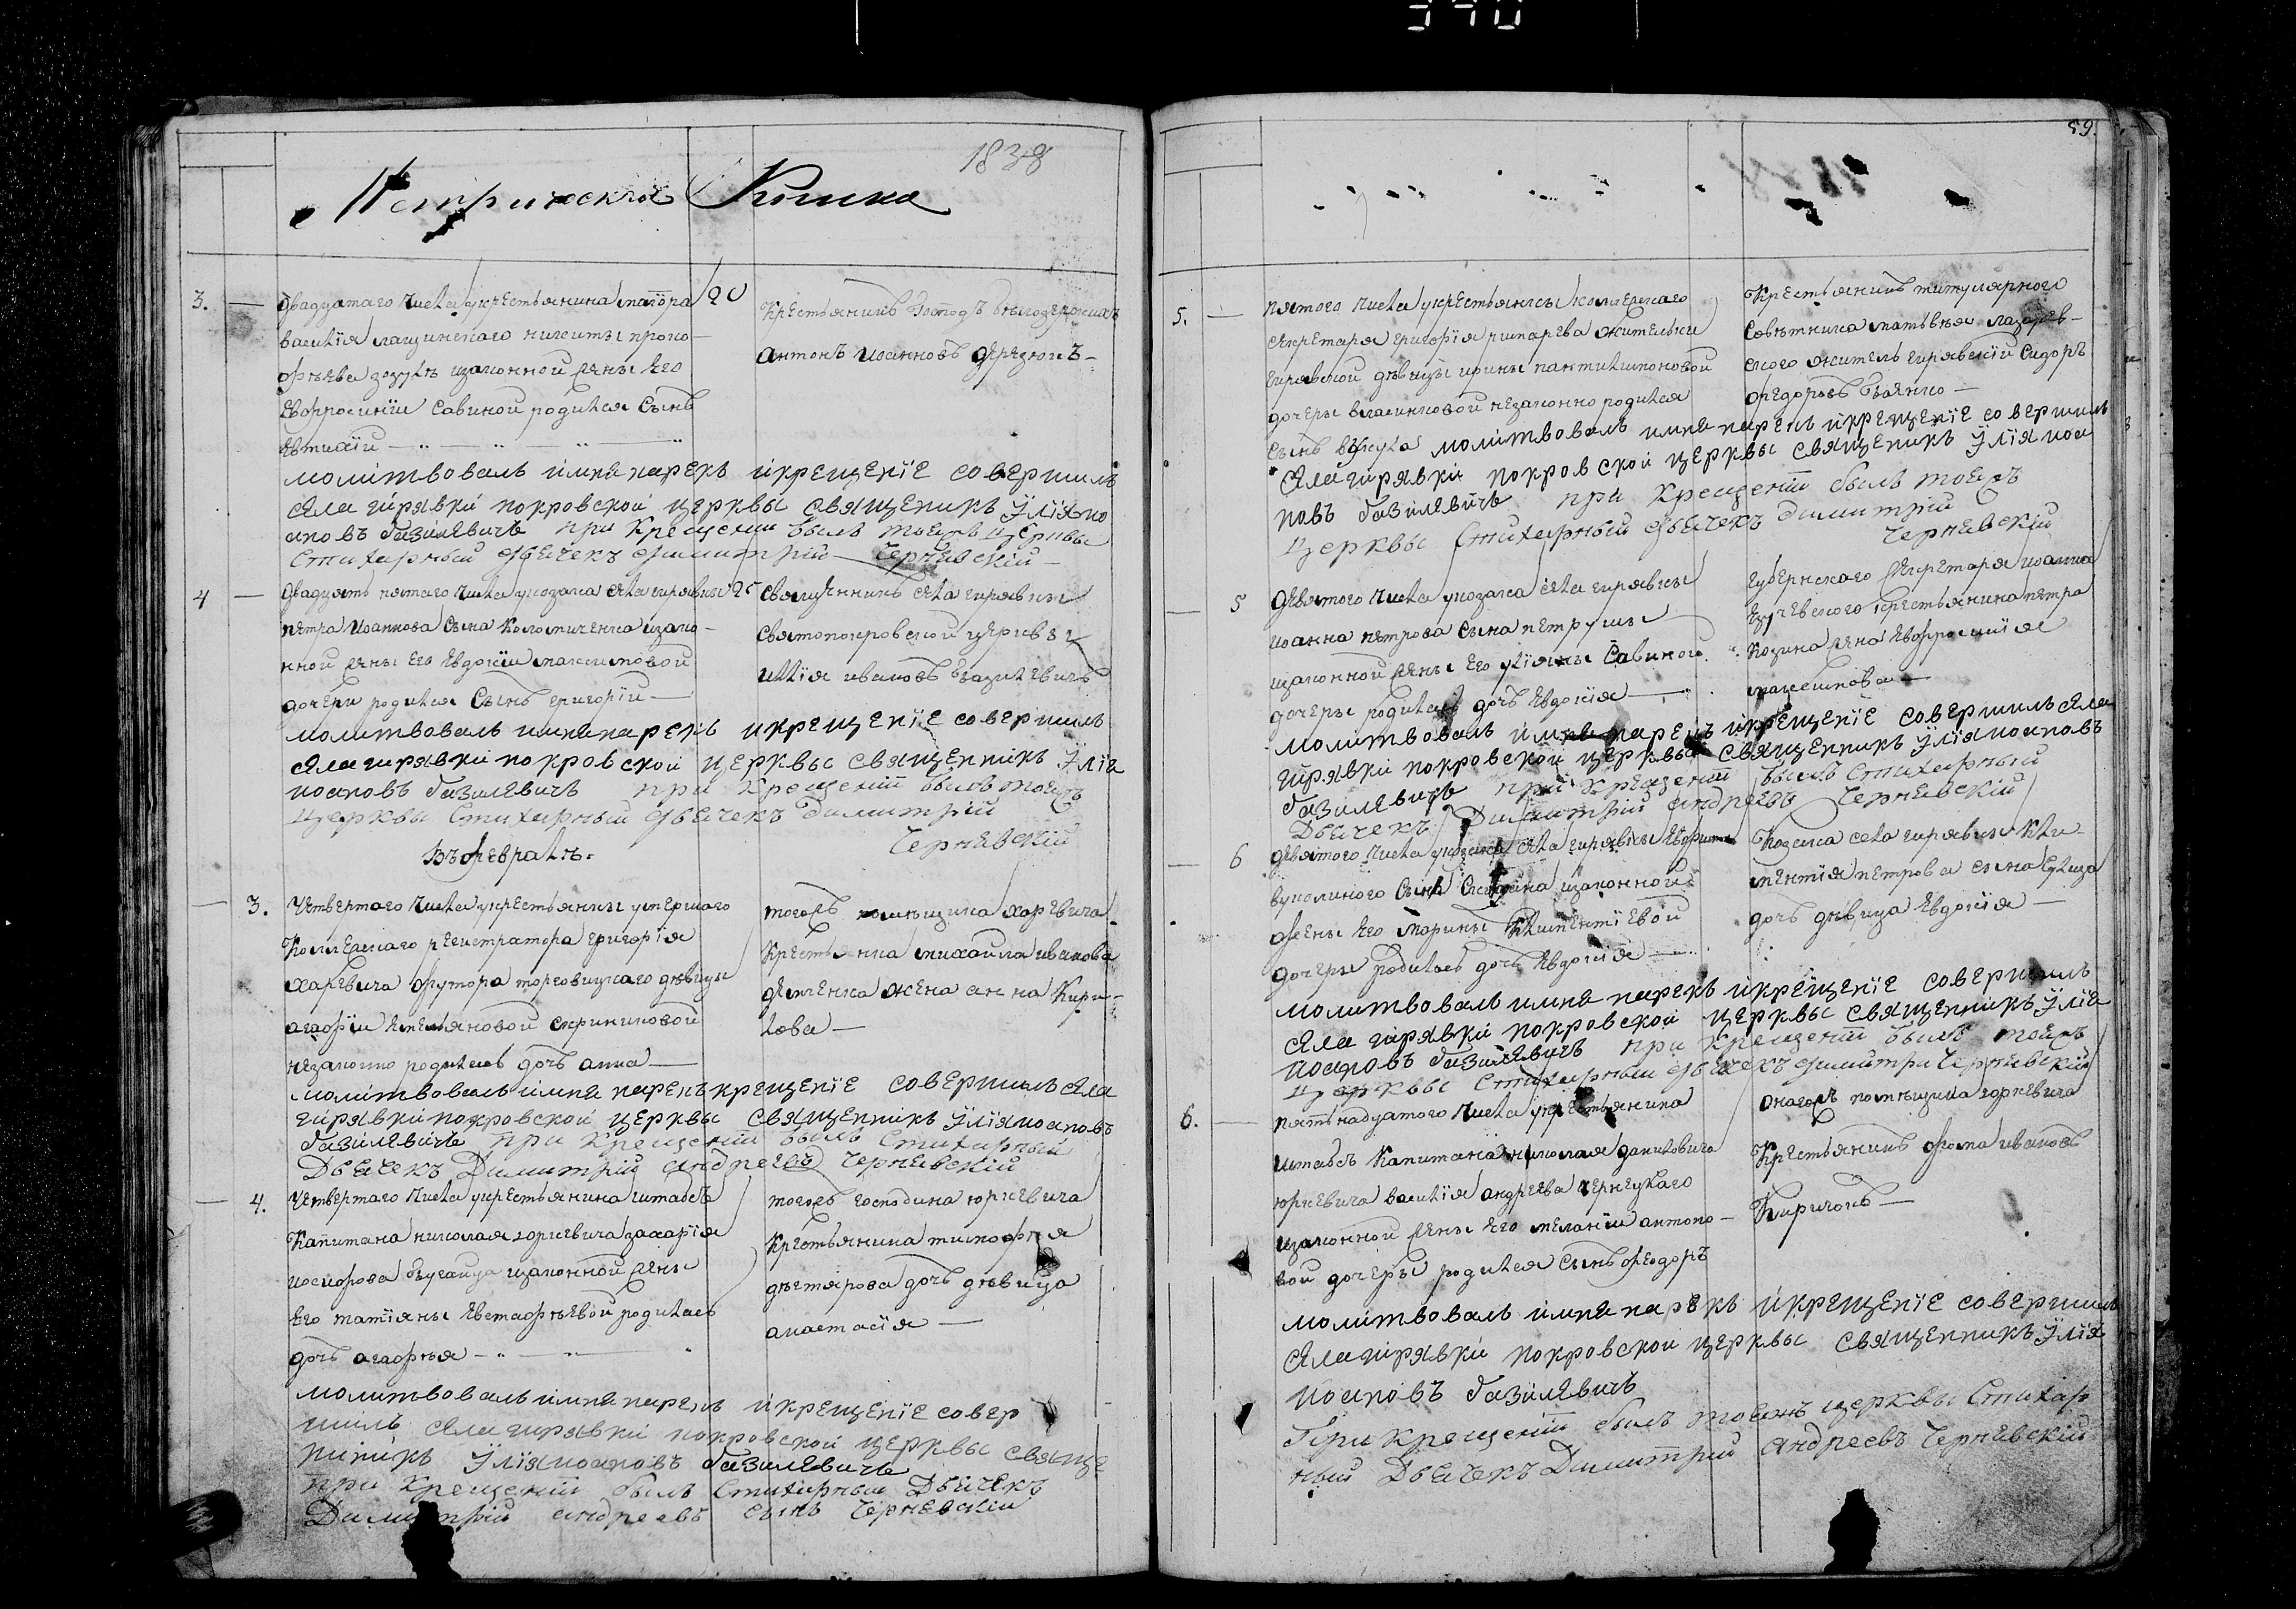 390
1838
Метрическая Книга
3. — двадцатаго числа укрестьянина маіора 20
василія лащинскаго никиты проко-
фіева зозулѣ изаконной жены его
Евфросиніи Савиной родился Сынъ
Евтихій
Крестьянинъ Господъ
антонъ иоанновъ
молитвовалъ имя нарекъ икрещеніе совершилъ
села гирявки покровской церквы священикъ Iлія ио
ановъ базилевичъ при Крещеніи былъ тоежъ Церквы
Стихарный дьячекъ димитрій Чернявскій
4 — двадцять пятаго числа укозака села гирявки 25
петра Иоаннова Сына Коломиченка изако-
нной жены его Евдокіи максимовой
дочери родился Сынъ григорій —
Священникъ села гирявки
Святопокровской церквы
иллія ивановъ базилевичъ
молитвовалъ имя нарекъ икрещеніе совершилъ
села гирявки покровской церквы священникъ Iлія
иоановъ базилевичъ при Крещеніи былъ тоежъ
Церквы Стихарный дьячекъ димитрій
Чернявскій
Въ февралѣ.
3. Четвертаго числа укрестьянки умершаго
Коллежскаго регистратора григорія
харевича хутора торговицкаго дѣвицы
агафіи Емельяновой скрипниковой
незаконно родилась дочь анна —
тогожъ помѣщика харевича
Крестьянина михаила иванова
жена анна Кири-
лова —
молитвовалъ имя нарекъ крещеніе совершилъ села
гирявки покровской церквы священникъ Iлія иоановъ
базилевичъ при Крещеніи былъ Стихарный
Дьячекъ Димитрій андреевъ Чернявскій
4. Четвертаго числа укрестьянина штабсъ
Капитана николая юркевича захарія
иосифова бугайца изаконной жены
его татіяны Евстафіевой родилась
дочь агафія
тогожъ господина юркевича
Крестьянина тимофея
дѣтярова дочь дѣвица
анастасія —
молитвовалъ имя нарекъ икрещеніе совер
шилъ села гирявки покровской церквы свяще
никъ Iлія иоановъ базилевичъ
при Крещеніи былъ Стихарный Дьячекъ
Димитрій андреевъ сынъ Чернявскій
59.
5. — пятого числа укрестьянки коллежскаго
секретаря григорія жительки
гирявской дѣвицы ирины пантилимоновой
дочеры власинковой незаконно родился
Сынъ вукула
Крестьянинъ титулярного
Совѣтника матвѣя лазарев-
ского житель гирявскій Сидоръ
федоровъ —
молитвовалъ имя нарекъ икрещеніе совершилъ
села гирявки покровской церквы священикъ Iлія иоа
новъ базилевичъ при Крещеніи былъ тоежъ
Церквы Стихарный дьячекъ димитрій
Чернявскій
— 5 девятого числа укозака села гирявки
иоанна петрова сына петруши
изаконной жены его уліяны Савиной
дочеры родилась дочь Евдокія —
губернскаго секретаря иоанна
крестьянина петра
Козина жена Евфросинія
максимова —
молитвовалъ имя нарекъ икрещеніе совершилъ села
гирявки покровской церквы священникъ Iлія иоановъ
базилевичъ при Крещеніи былъ Стихарный
Дьячекъ Димитрій андреевъ Чернявскій
— 6 девятого числа укозака села гирявки
вуколиного Сына изаконной
жены его марины Климентіевой
дочеры родилась дочь Евдокія —
Козака села гирявки Кли-
ментія петрова сына
дочь дѣвица Евдокія —
молитвовалъ имя нарекъ икрещеніе совершилъ
села гирявки покровской церквы священникъ Iлія
иоановъ базилевичъ при Крещеніи былъ тоежъ
Церквы Стихарный дьячекъ димитри Чернявскій
6. — пятьнадцатого числа укрестьянина
штабсъ Капитана николая даниловича
юркевича василія андреева чернецкаго
изаконной жены его меланіи антоно-
вой дочеры родился Сынъ Феодоръ
онагожъ помѣщика юркевича
Крестьянинъ фома ивановъ
Киричокъ —
молитвовалъ имя нарекъ икрещеніе совершилъ
села гирявки покровской церквы священникъ Iлія
иоановъ базилевичъ
При Крещеніи былъ тоежъ церквы Стихар
ный Дьячекъ Димитрій андреевъ Чернявскій